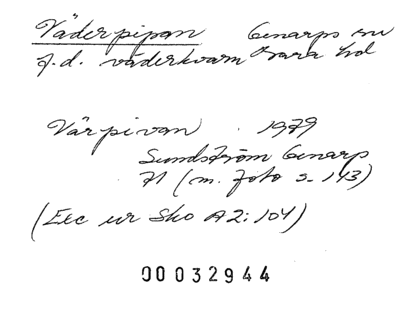 Väderpipan Genarps sn
f.d. väderkvarn Bara hd
Värpivan 1979
Sundström Genarp
71 (m. foto s. 143)
(Exc ur Sko A2:104)
00032944